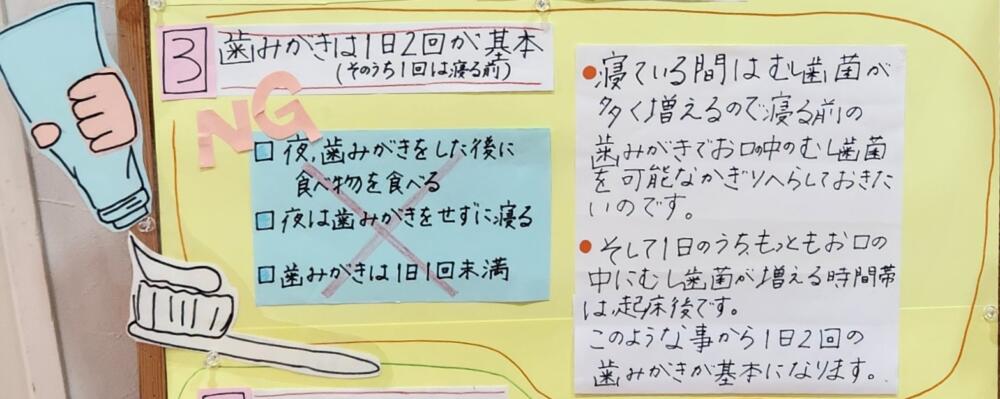 3 歯みがきは1日2回が基本
(そのうち1回は寝る前)
NG
□ 夜,歯みがきをした後に
食べ物を食べる
□ 夜は歯みがきをせずに寝る
□ 歯みがきは1日1回未満
● 寝ている間はむし歯菌が
多く増えるので寝る前の
歯みがきでお口の中のむし歯菌
を可能なかぎりへらしておきた
いのです。
● そして1日のうち、もっともお口の
中にむし歯菌が増える時間帯
は、起床後です。
このような事から1日2回の
歯みがきが基本になります。